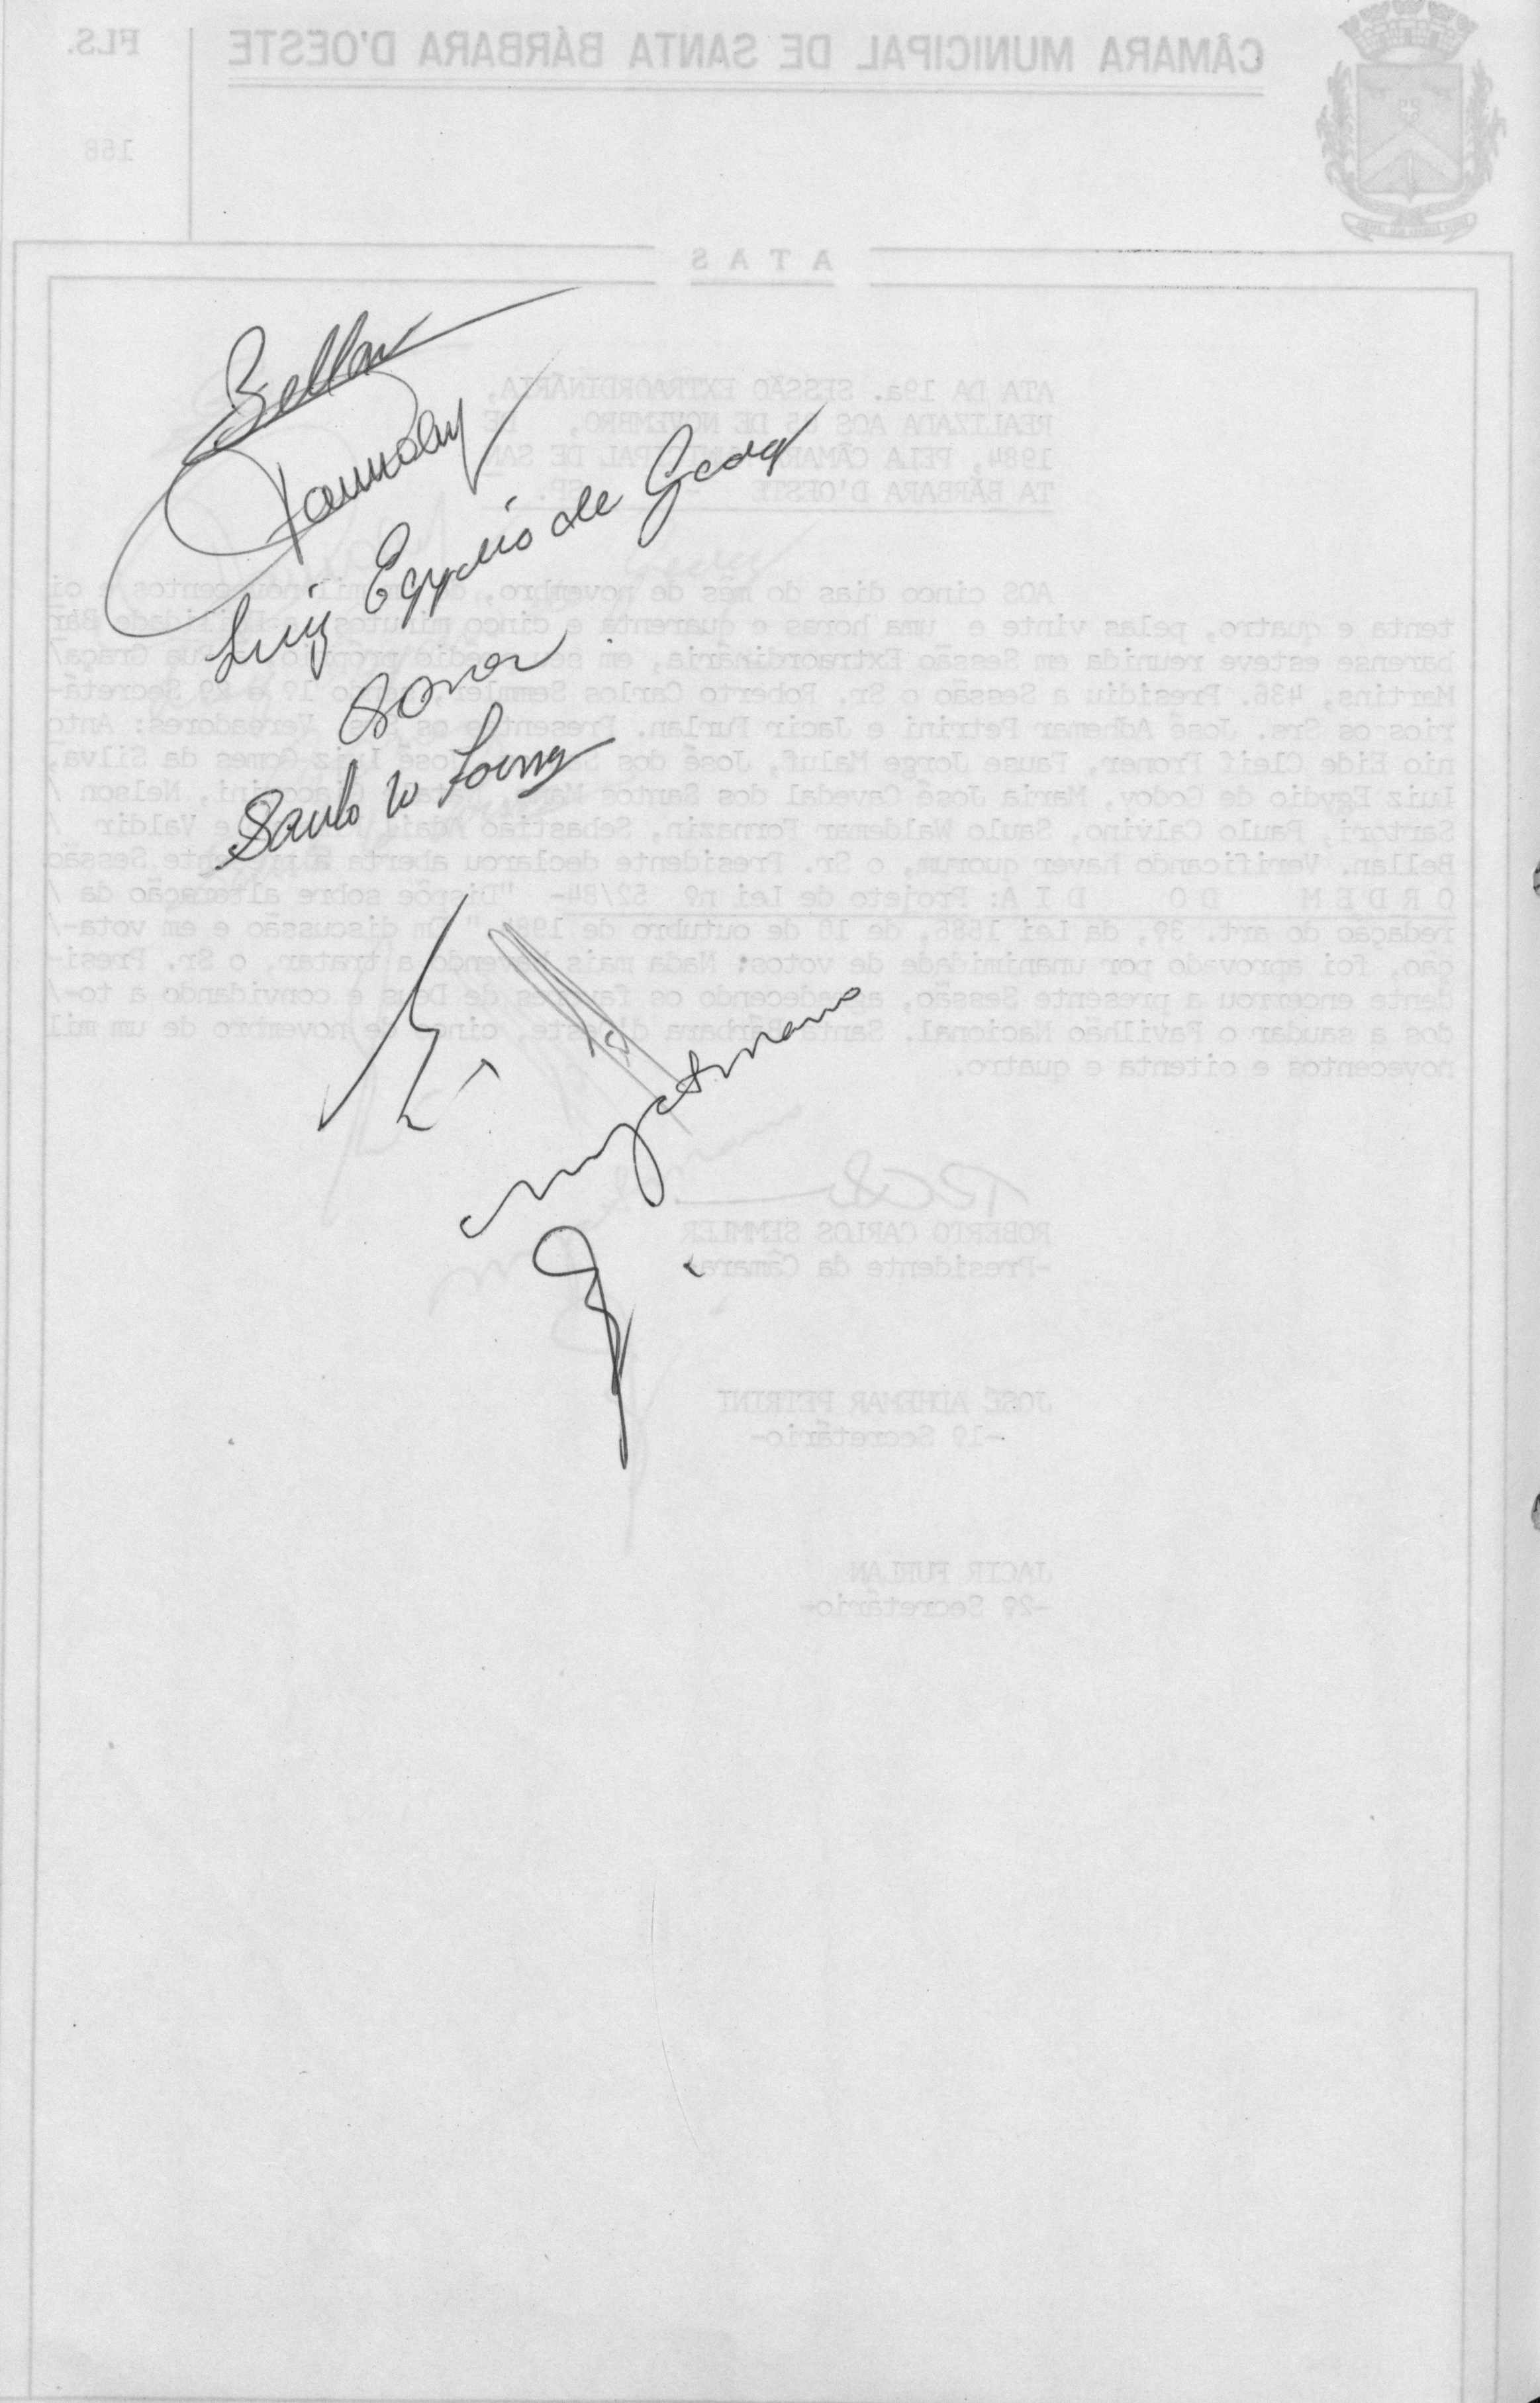 CÂMARA MUNICIPAL DE SANTA BÁRBARA D'OESTE
FLS.
168
ATAS
ATA DA 19a. SESSÃO EXTRAORDINÁRIA,
REALIZADA AOS 05 DE NOVEMBRO, DE
1984, PELA CÂMARA MUNICIPAL DE SAN
TA BÁRBARA D'OESTE SP.
AOS cinco dias do mês de novembro, de mil novecentos e oi
tenta e quatro, pelas vinte e uma horas e quarenta e cinco minutos, Edilidade Bar
barense esteve reunida em Sessão Extraordinária, em seu prédio próprio Rua Graça/
Martins, 436. Presidiu a Sessão o Sr. Roberto Carlos Semmler, 1º e 2º Secretá-
rios os Srs. José Adhemar Petrini e Jacir Furlan. Presente os Vereadores: Anto
nio Eide Cleif Proner, Fause Jorge Maluf, José dos José Luiz Gomes da Silva,
Luiz Egydio de Godoy, Maria José Cavedal dos Santos Nelson /
Sartori, Paulo Calvino, Saulo Waldemar Fornazin, Sebastião Adail e Valdir /
Bellan. Verificando haver quorum, o Sr. Presidente declarou aberta a presente Sessão
O R D E M D O D I A: Projeto de Lei nº 52/84- "Dispõe sobre alteração da /
redação do art. 3º, da Lei 1586, de 10 de outubro de 198 " Em discussão e em vota-/
ção, foi aprovado por unanimidade de votos; Nada mais havendo a tratar, o Sr. Presi-
dente encerrou a presente Sessão, agradecendo os favores de Deus e convidando a to-/
dos a saudar o Pavilhão Nacional. Santa Bárbara d'Oeste, cinco de novembro de um mil
novecentos e oitenta e quatro.
ROBERTO CARLOS SEMMLER
-Presidente da Câmara-
JOSÉ ADHEMAR PETRINI
-1º Secretário-
JACIR FURLAN
-2º Secretário-
Bellan
Luiz Egydio de Godoy
Saulo W